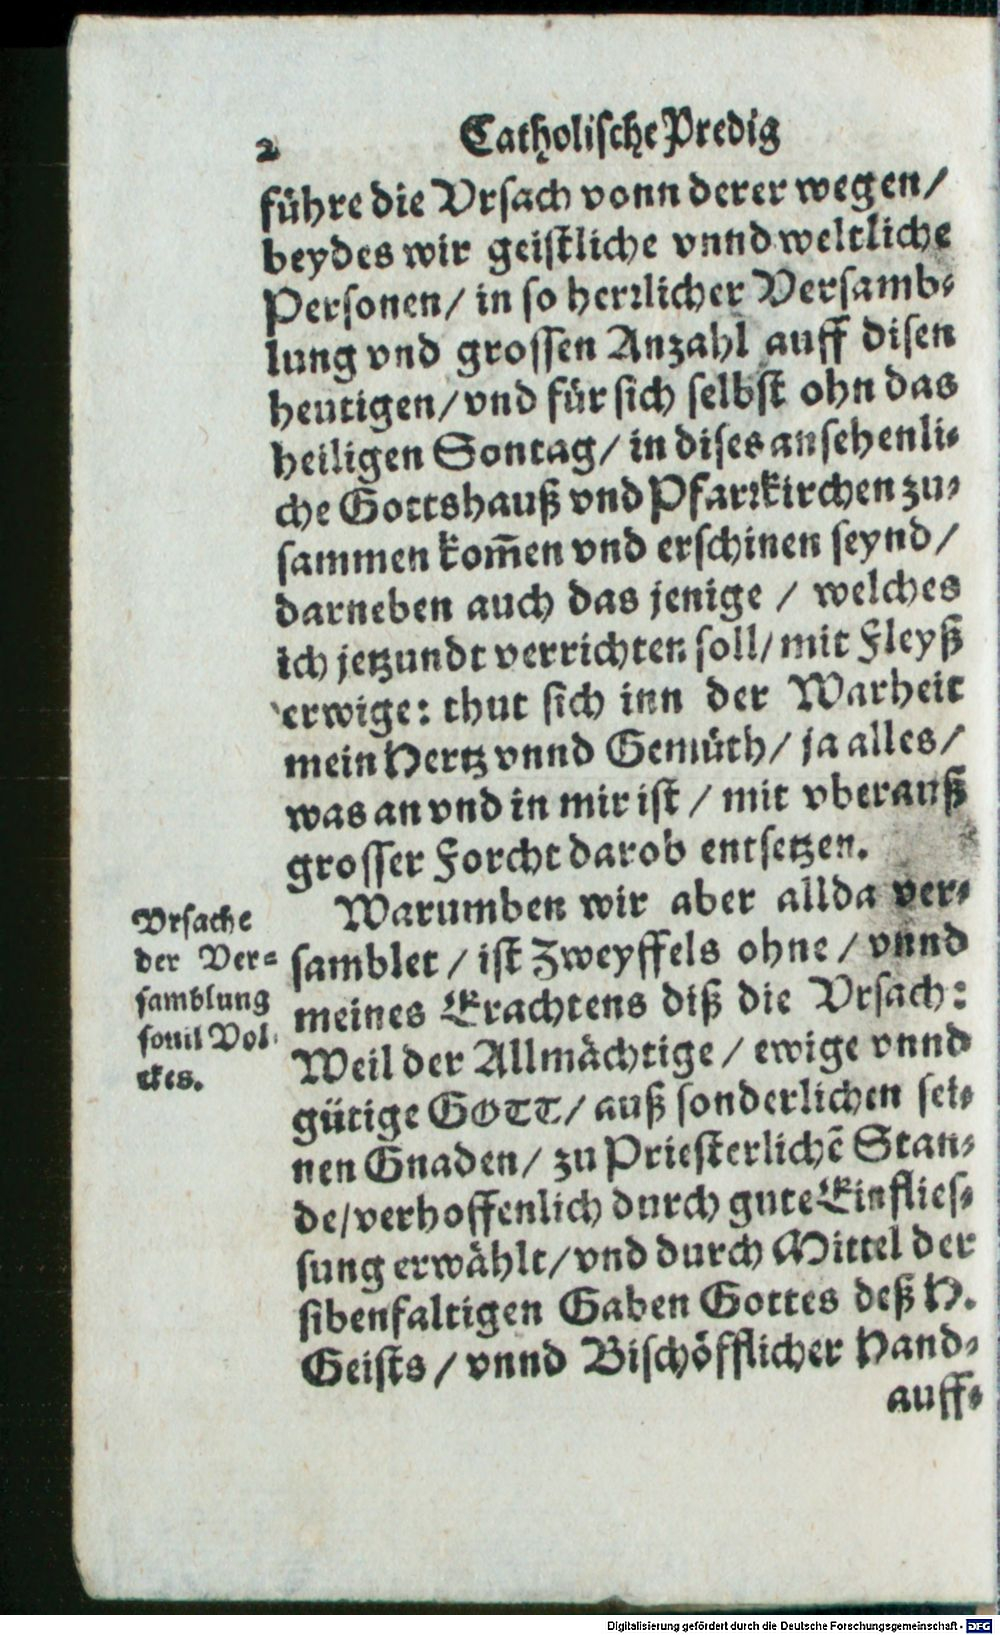 2 Catholische Predig
führe die Vrsach vonn derer wegen/
beydes wir geistliche vnnd weltliche
Personen/ in so herrlicher Versamb-
lung vnd grossen Anzahl auff disen
heutigen/ vnd für sich selbst ohn das
heiligen Sontag/ in dises ansehenli-
che Gottshauß vnd Pfarrkirchen zu-
sammen kom̃en vnd erschinen seynd/
darneben auch das jenige / welches
ich jetzundt verrichten soll/ mit Fleyß
erwige: thut sich inn der Warheit
mein Hertz vnnd Gemüth/ ja alles/
was an vnd in mir ist / mit vberauß
grosser Forcht darob entsetzen.
Warumben wir aber allda ver-
samblet / ist Zweyffels ohne / vnnd
meines Erachtens diß die Vrsach:
Weil der Allmächtige / ewige vnnd
gütige GOTT/ auß sonderlichen sei-
nen Gnaden/ zu Priesterlichẽ Stan-
de/ verhoffenlich durch gute Einflies-
sung erwählt/ vnd durch Mittel der
sibenfaltigen Gaben Gottes deß H.
Geists / vnnd Bischöfflicher Hand-
auff-
Vrsache
der Ver-
samblung
souil Vol
ckes.
Digitalisierung gefördert durch die Deutsche Forschungsgemeinschaft - DFG